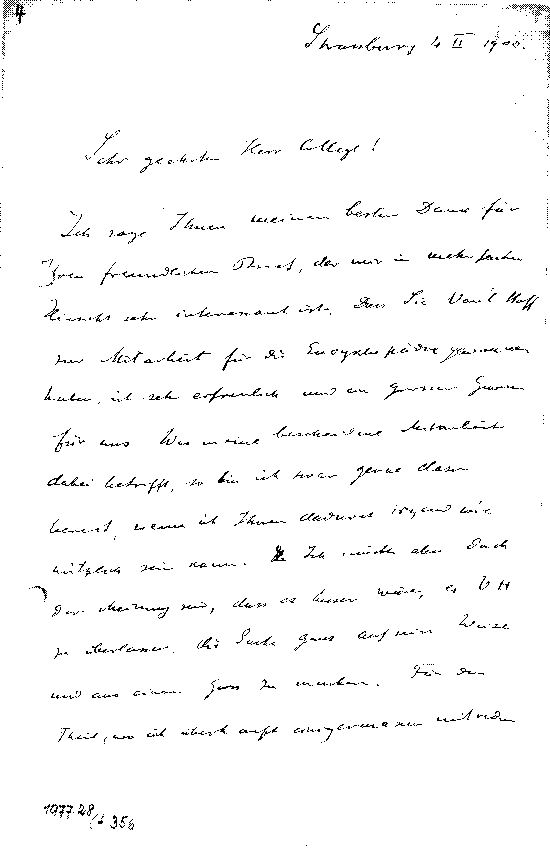 4
Strassburg 4 II 1900.
Sehr geehrter Herr College!
Ich sage Ihnen meinen besten Dank für
Ihren freundlichen Brief, der mir in mehrfacher
Hinsicht sehr interessant ist. Dass Sie Van't Hoff
zur Mitarbeit für die Encyklopädie gewonnen
haben, ist sehr erfreulich und ein grosser Gewinn
für uns. Was meine bescheidene Mitarbeit
dabei betrifft, so bin ich zwar gerne dazu
bereit, wenn ich Ihnen dadurch irgend wie
nützlich sein kann. Ich möchte aber doch
der Meinung sein, dass es besser wäre, es V H
zu überlassen, die Sache ganz auf seine Weise
und aus einem Guss zu machen. Für den
Theil, wo ich überhaupt einigermassen mitreden
1977-28/ 356